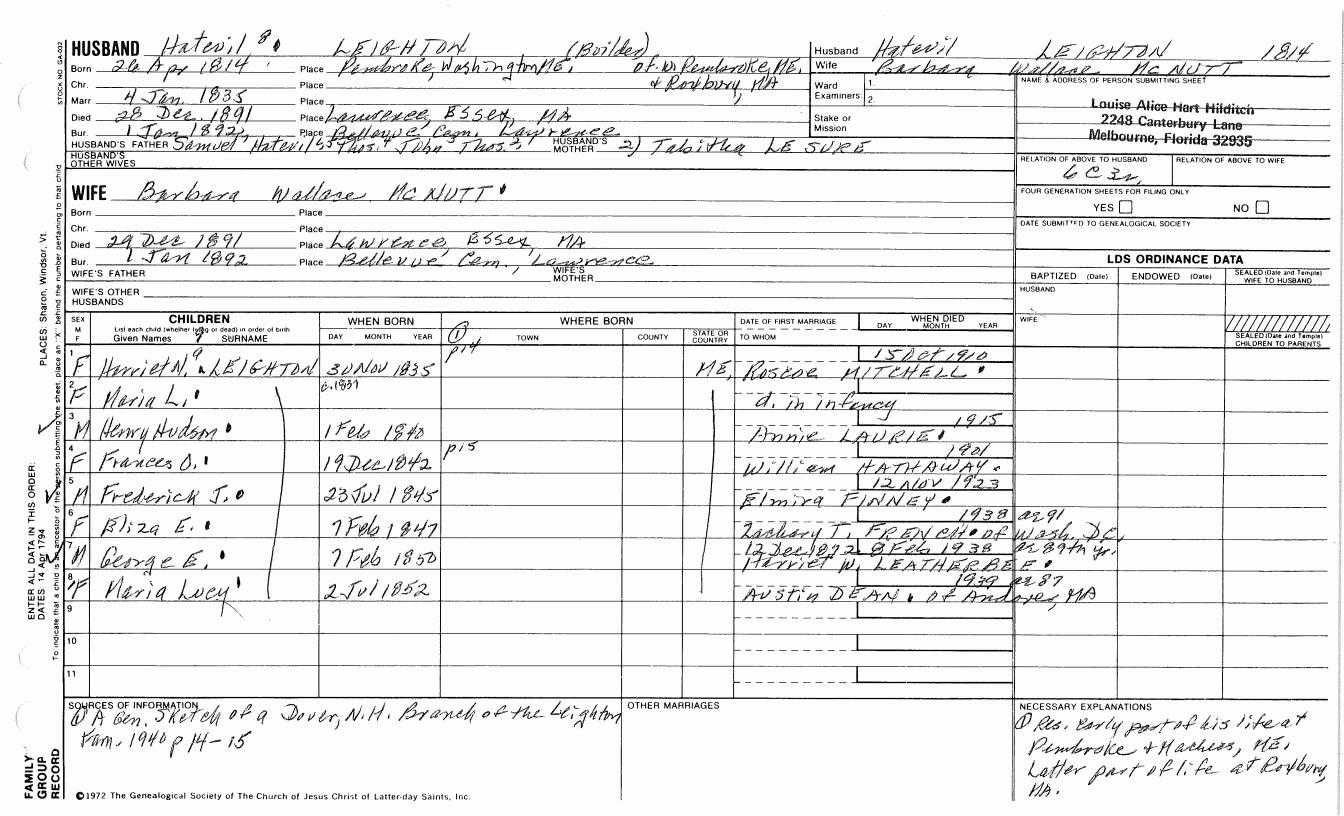 HUSBAND Hatevil 8 LEIGHTON (Builder)
Born 26 Apr 1814 Place Pembroke, Washington ME. of W Pembroke, ME.
Chr. Place & Roxbury, MA
Marr 4 Jan. 1835 Place
Died 28 Dec. 1891 Place Lawrence, Essex, MA
Bur. 1 Jan 1892, Place Bellevue Cem. Lawrence
HUSBAND'S FATHER Samuel, Hatevil Thos. 4 John 3 Thos. 2, HUSBAND'S MOTHER 2) Tabitha LE SURE
HUSBAND'S OTHER WIVES
Husband Hatevil LEIGHTON 1814
Wife Barbara Wallace MC NUTT
Ward Examiners 1. 2.
Stake or Mission
NAME & ADDRESS OF PERSON SUBMITTING SHEET
Louise Alice Hart Hilditch
2248 Canterbury Lane
Melbourne, Florida 32935
RELATION OF ABOVE TO HUSBAND RELATION OF ABOVE TO WIFE
6C3r,
FOUR GENERATION SHEETS FOR FILING ONLY
YES NO
DATE SUBMITTED TO GENEALOGICAL SOCIETY
WIFE Barbara Wallace MC NUTT
Born Place
Chr. Place
Died 29 Dec 1891 Place Lawrence, Essex, MA
Bur. 1 Jan 1892 Place Bellevue Cem., Lawrence
WIFE'S FATHER WIFE'S MOTHER
WIFE'S OTHER HUSBANDS
LDS ORDINANCE DATA
BAPTIZED (Date) ENDOWED (Date) SEALED (Date and Temple) WIFE TO HUSBAND
HUSBAND
WIFE
SEALED (Date and Temple) CHILDREN TO PARENTS
SEX M F CHILDREN WHEN BORN WHERE BORN DATE OF FIRST MARRIAGE WHEN DIED
List each child (whether living or dead) in order of birth
Given Names SURNAME DAY MONTH YEAR TOWN COUNTY STATE OR COUNTRY TO WHOM DAY MONTH YEAR
① p14
1 F Harriet N. 9 LEIGHTON 30 Nov 1835 ME, Roscoe MITCHELL 15 Oct 1910
2 F Maria L. c.1837 d. in infancy
3 M Henry Hudson 1 Feb 1840 Annie LAURIE 1915
4 F Frances O. 19 Dec 1842 p15 William HATHAWAY 1901
5 M Frederick J. 23 Jul 1845 Elmira FINNEY 12 Nov 1923
6 F Eliza E. 7 Feb 1847 Zachary T. FRENCH of Wash. DC, 1938 ae 91
7 M George E. 7 Feb 1850 12 Dec 1872 Harriet W. LEATHERBEE 8 Feb 1938 ae 89th yr.
8 F Maria Lucy 2 Jul 1852 Austin DEAN of Andover, MA 1939 ae 87
9
10
11
SOURCES OF INFORMATION
① A Gen. Sketch of a Dover, N.H. Branch of the Leighton
Fam. 1940 p 14-15
OTHER MARRIAGES
NECESSARY EXPLANATIONS
① Res. early part of his life at
Pembroke & Machias, ME.
Latter part of life at Roxbury,
MA.
©1972 The Genealogical Society of The Church of Jesus Christ of Latter-day Saints, Inc.
FAMILY
GROUP
RECORD
ENTER ALL DATA IN THIS ORDER:
DATES 14 Apr 1794
PLACES: Sharon, Windsor, Vt.
To indicate that a child is an ancestor of the person submitting the sheet, place an "X" behind the number pertaining to that child
STOCK NO. GA-032